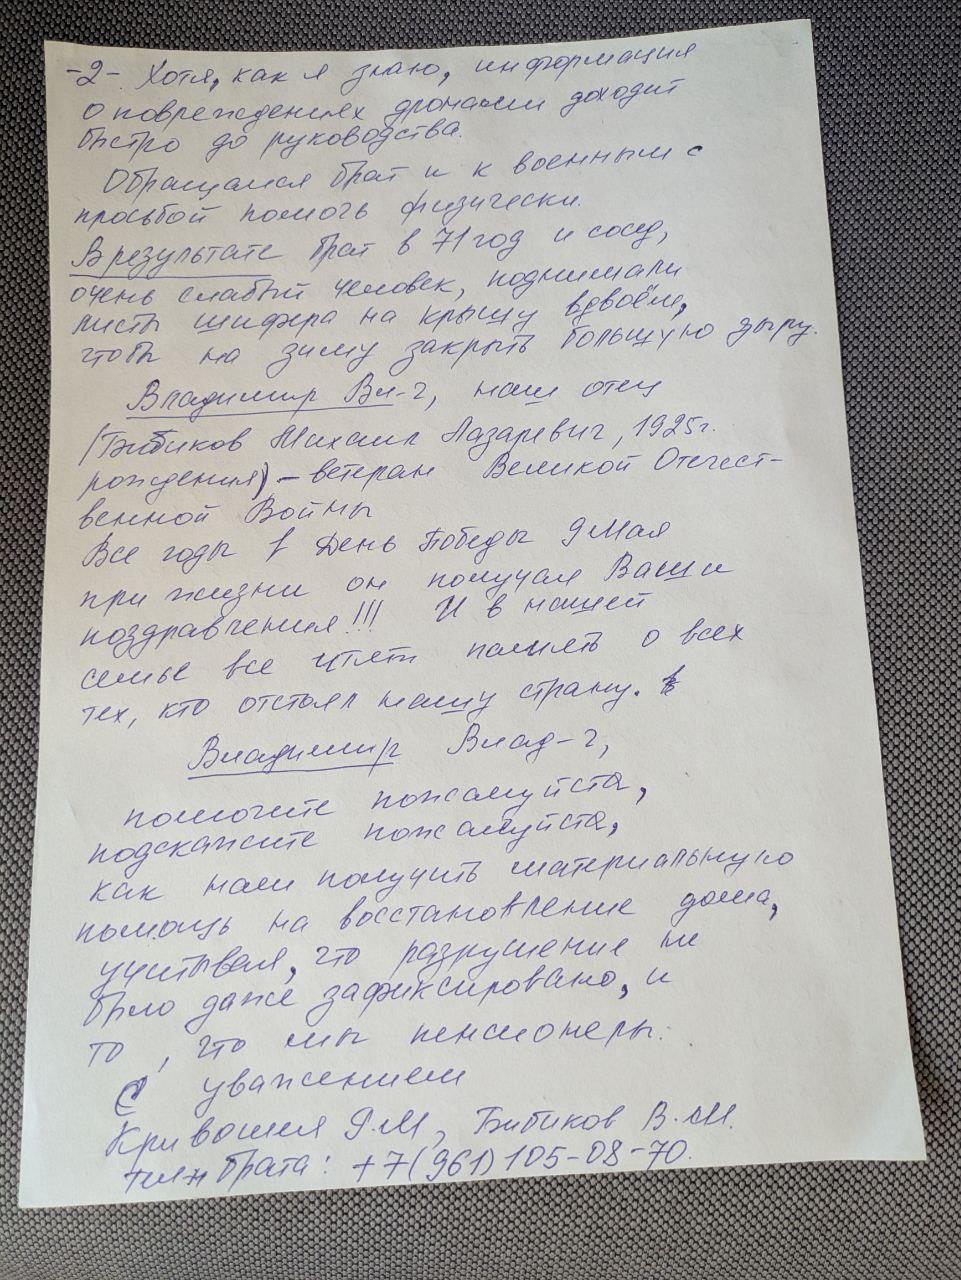 -2-. Хотя, как я знаю, информация
о повреждениях дронами доходит
быстро до руководства.
Обращался брат и к военным с
просьбой помочь физически.
В результате брат в 71 год и сосед,
очень слабый человек, поднимали
листы шифера на крышу вдвоём,
чтобы на зиму закрыть большую дыру.
Владимир Вл-ч, наш отец
(Бибиков Михаил Лазаревич, 1925г.
рождения) – ветеран Великой Отечест-
венной Войны
Все годы в День Победы 9 Мая
при жизни он получал Ваши
поздравления!!! И в нашей
семье все чтят память о всех
тех, кто отстоял нашу страну.
Владимир Влад-ч,
помогите пожалуйста,
подскажите пожалуйста,
как нам получить материальную
помощь на восстановление дома,
учитывая, что разрушение не
было даже зафиксировано, и
то, что мы пенсионеры.
С уважением
Кривошея Я.М, Бибиков В.М.
тел брата: +7(961)105-08-70.